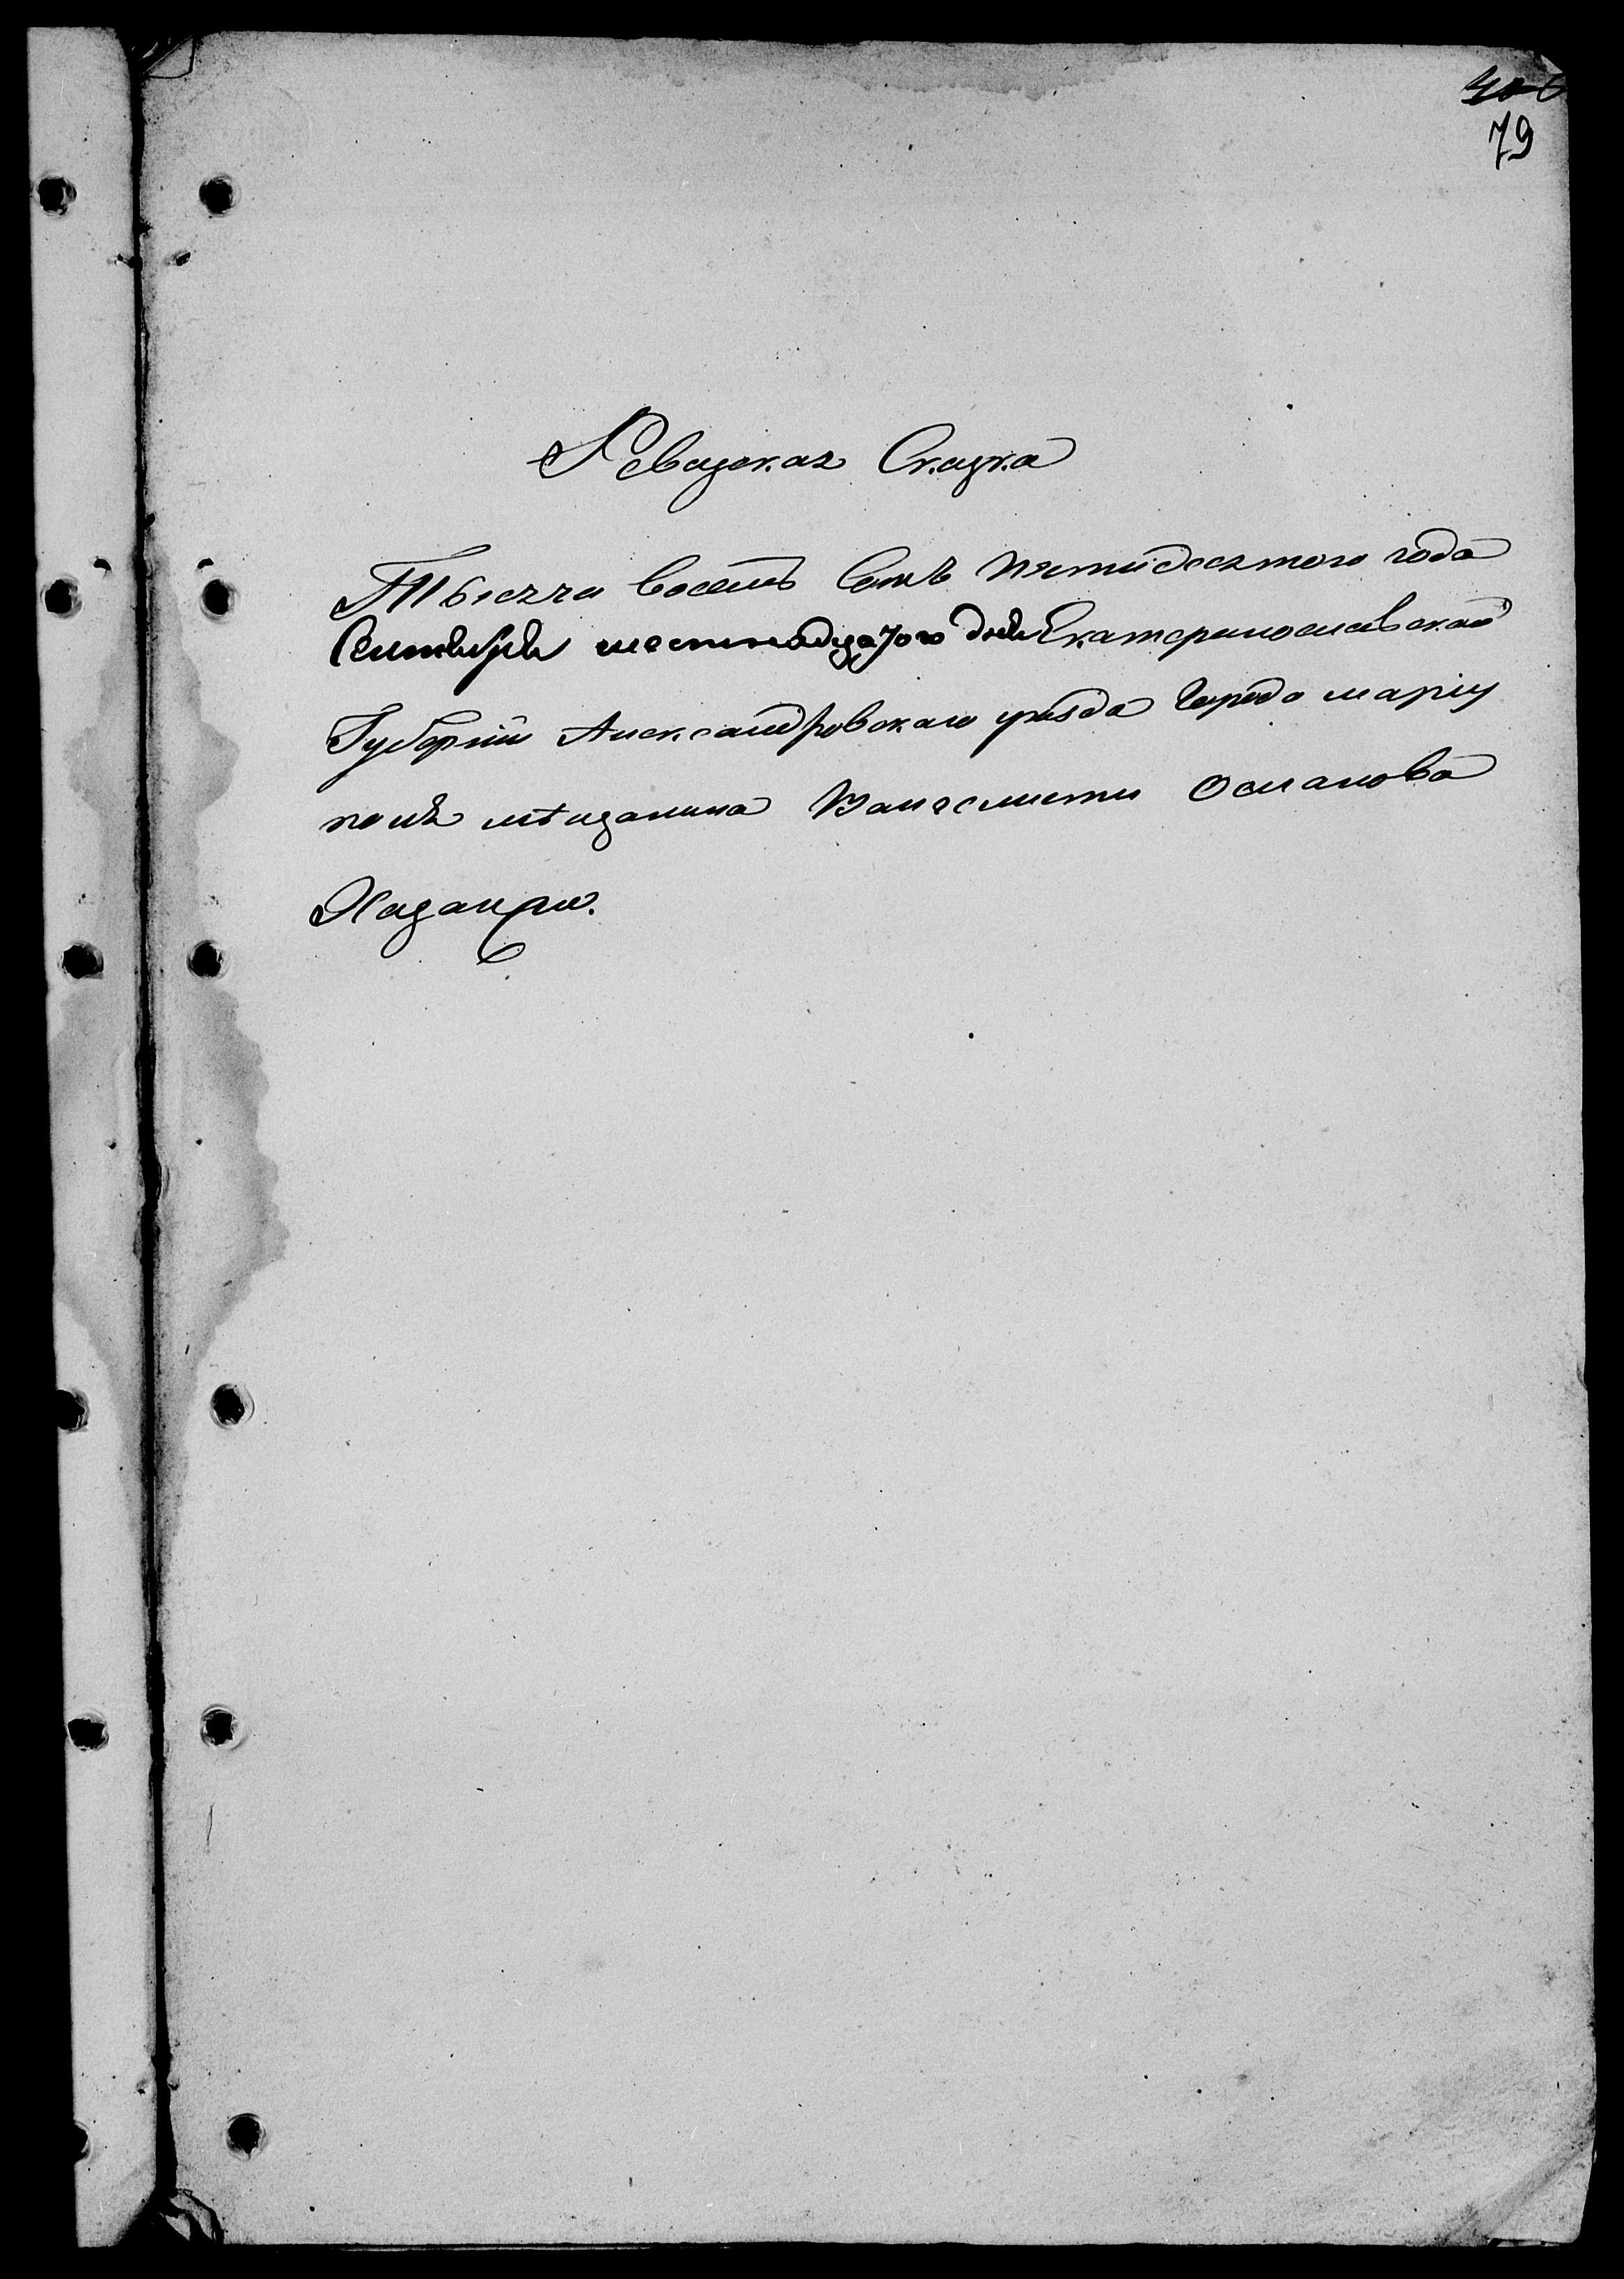 79
Ревизская Сказка
Тысяча восемь Сотъ пятидесятого года
Сентября шестнадцатого дня Екатеринославской
Губерніи Александровского уѣзда Города маріу
поля мѣщанина Османова